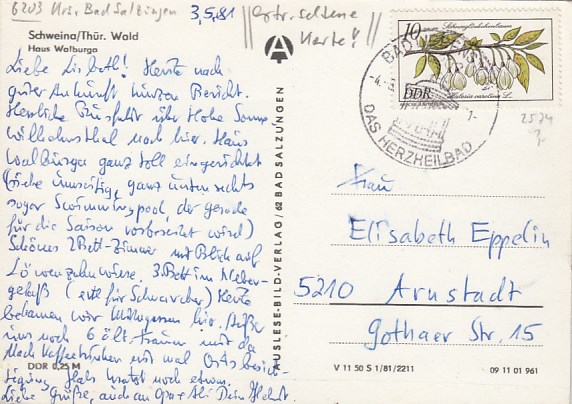 6203 Krs. Bad Salzungen 3,5,81
Schweina/Thür. Wald
Haus Walburga
Liebe Lisbeth! Heute nach
guter Ankunft kurzen Bericht.
Herrliche Busfahrt über Hohe Sonne
Wilhelmsthal nach hier. Haus
Walburga ganz toll eingerichtet
(siehe umseitig, ganz unten rechts
sogar Swimmingpool, der gerade
für die Saison vorbereitet wird)
Schönes 2 Bett-Zimmer mit Blick auf
Löwenzahnwiese. 3. Bett im Neben-
gelaß ( für Schnarcher) Heute
bekamen wir Mittagessen hier. Außer
uns noch 6 ält. Frauen
Nach Kaffeetrinken erst mal Ortsbesich-
tigung, noch etwas.
Liebe Grüße, auch an
DDR 0,25 M
AUSLESE-BILD-VERLAG / 62 BAD SALZUNGEN
A
10
DDR
Halesia carolina L.
BAD
DAS HERZHEILBAD
2574
Frau
Elisabeth Eppelin
5210 Arnstadt
Gothaer Str. 15
V 11 50 S 1/81/2211
09 11 01 961